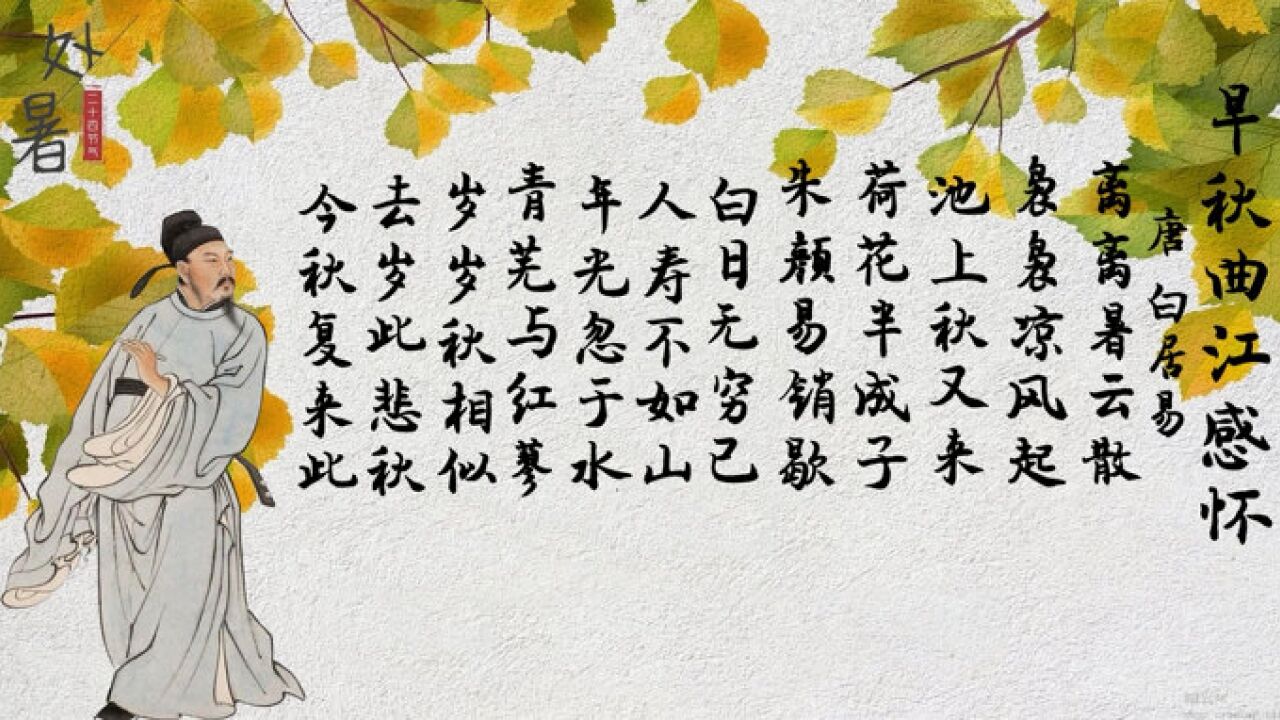 早秋曲江感怀
唐 白居易
离离暑云散
袅袅凉风起
池上秋又来
荷花半成子
朱颜易销歇
白日无穷已
人寿不如山
年光忽于水
青芜与红蓼
岁岁秋相似
去岁此悲秋
今秋复来此
处暑
二十四节气